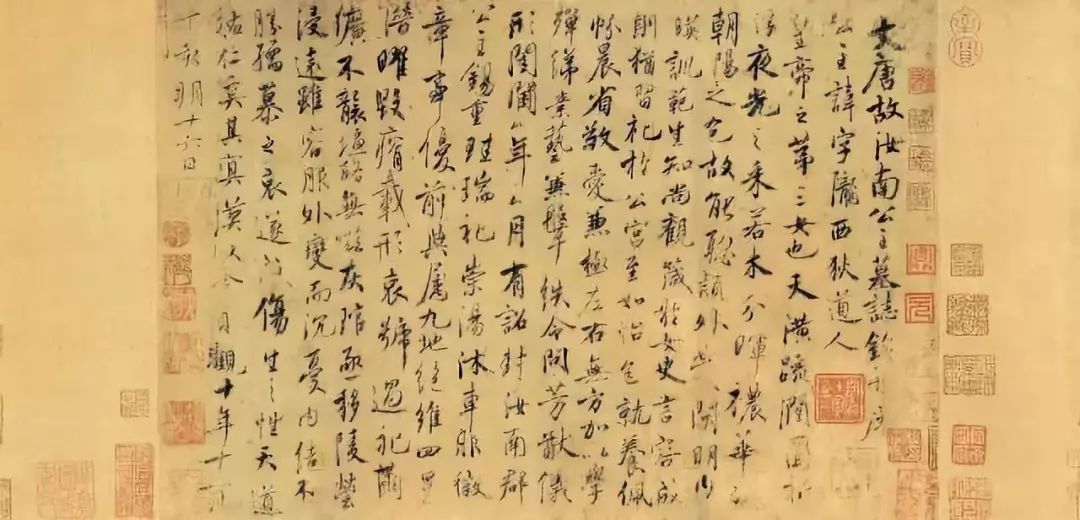 大唐故汝南公主墓誌銘并序
公主諱字隴西狄道人
皇帝之第三女也天潢疏潤圓折
浮夜光之采若木分暉穠華
朝陽之色故能聰穎外發閑明內
暎訓範生知尚觀箴於女史言容成
則猶習礼於公宮至如怡色就養佩
帉晨省敬愛兼極左右無方加以學
殫綈素藝兼鞶紩令問芳猷儀
形閨閫年月有詔封汝南郡
公主錫重珪瑞礼崇湯沐車服徽
章事優前典屬九地絕維四星
潛曜毀瘠載形哀號過礼繭
纊不襲鹽酪無嗞灰琯亟移陵塋
浸遠雖容服外變而沉憂內結不
勝孺慕之哀遂成傷生之性天道
祐仁奚其冥漠以今貞觀十年十一月
丁亥朔十六日